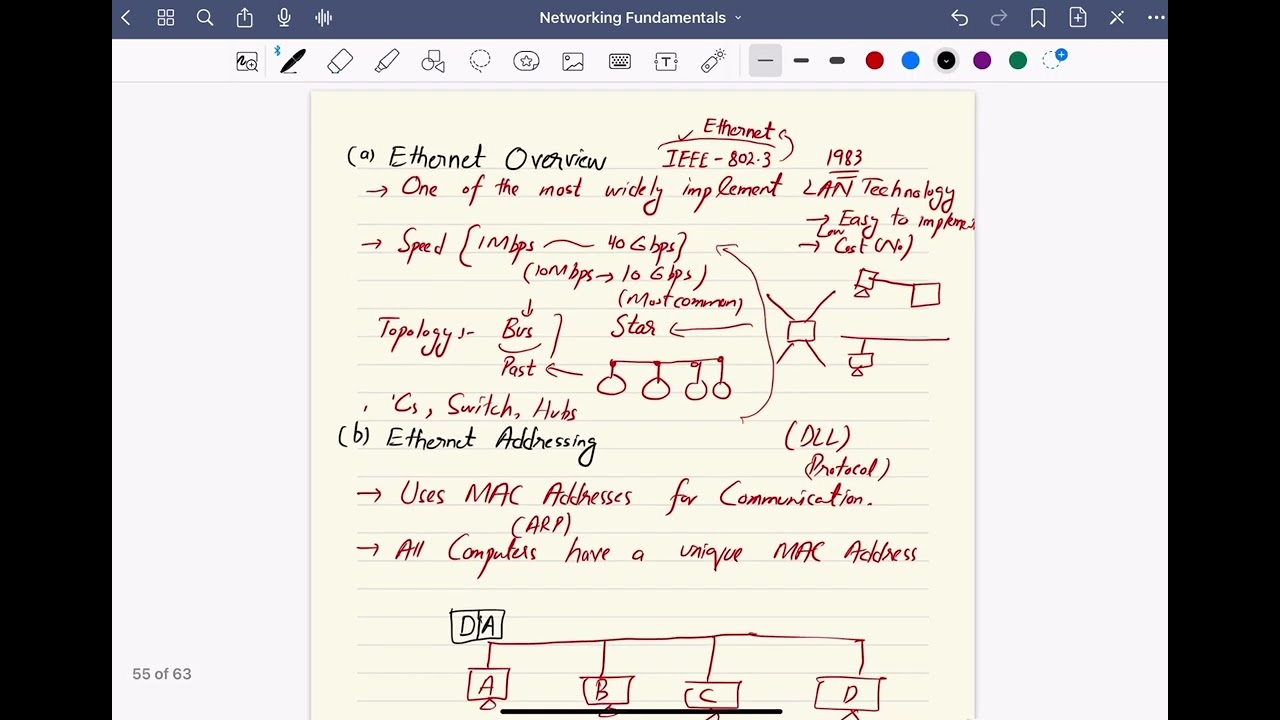 Networking Fundamentals
Ethernet
(a) Ethernet Overview
IEEE - 802.3
1983
→ One of the most widely implement LAN Technology
→ Easy to implement
→ Speed {1Mbps 40 Gbps}
Low
→ Cost (No)
(10Mbps → 10 Gbps)
(Most common)
Topology :- Bus
Star
Past
Cs, Switch, Hubs
(b) Ethernet Addressing
(DLL)
(Protocol)
→ Uses MAC Addresses for Communication.
(ARP)
→ All Computers have a unique MAC Address
D A
A B C D
55 of 63